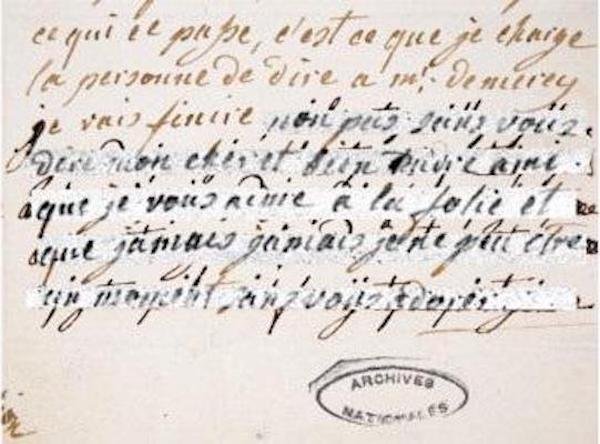 ce qui ce passe, c'est ce que je charge
la personne de dire a mr. de mercy
je vais finire non pas sans vous
dire mon cher et bien aimé ami
que je vous aime à la folie et
que jamais jamais je ne peu être
un moment sans vous adorer
ARCHIVES
NATIONALES